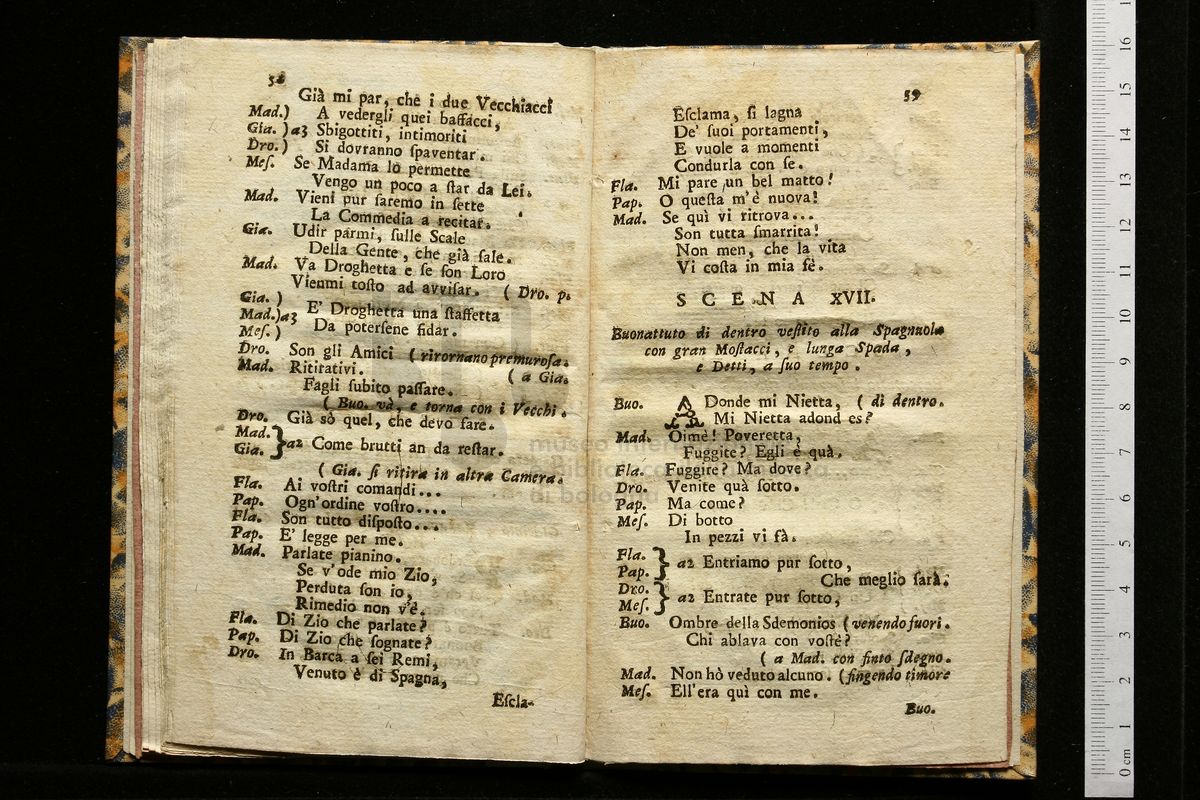 58
Già mi par, che i due Vecchiacci
Mad.) A vedergli quei baffacci,
Gia. )a3 Sbigottiti, intimoriti
Dro.) Si dovranno ſpaventar.
Meſ. Se Madama lo permette
Vengo un poco a ſtar da Lei.
Mad. Vieni pur ſaremo in ſette
La Commedia a recitar.
Gia. Udir parmi, ſulle Scale
Della Gente, che già ſale.
Mad. Va Droghetta e ſe ſon Loro
Vienmi toſto ad avviſar. ( Dro. p.
Gia. )
Mad.)a3 E' Droghetta una ſtaffetta
Meſ. ) Da poterſene fidar.
Dro. Son gli Amici ( rirornano premuroſa.
Mad. Ritiratevi. ( a Gia.
Fagli ſubito paſſare.
( Buo. và, e torna con i Vecchi.
Dro. Già sò quel, che devo fare.
Mad. } a2 Come brutti an da reſtar.
Gia.
( Gia. ſi ritira in altra Camera.
Fla. Ai voſtri comandi...
Pap. Ogn'ordine voſtro....
Fla. Son tutto diſpoſto...
Pap. E' legge per me.
Mad. Parlate pianino.
Se v'ode mio Zio,
Perduta ſon io,
Rimedio non v'è.
Fla. Di Zio che parlate?
Pap. Di Zio che ſognate?
Dro. In Barca a ſei Remi,
Venuto è di Spagna,
Eſcla-
59
Eſclama, ſi lagna
De' ſuoi portamenti,
E vuole a momenti
Condurla con ſe.
Fla. Mi pare un bel matto!
Pap. O queſta m'è nuova!
Mad. Se quì vi ritrova...
Son tutta ſmarrita!
Non men, che la vita
Vi coſta in mia fè.
SCENA XVII.
Buonattuto di dentro veſtito alla Spagnuola
con gran Moſtacci, e lunga Spada,
e Detti, a ſuo tempo.
Buo. A Donde mi Nietta, ( di dentro.
Mi Nietta adond es?
Mad. Oimè! Poveretta,
Fuggite? Egli è quà.
Fla. Fuggire? Ma dove?
Dro. Venite quà ſotto.
Pap. Ma come?
Meſ. Di botto
In pezzi vi fà.
Fla. } a2 Entriamo pur ſotto,
Pap. Che meglio ſarà.
Dro. } a2 Entrate pur ſotto,
Meſ.
Buo. Ombre della Sdemonios ( venendo fuori.
Chi ablava con voſtè?
( a Mad. con finto ſdegno.
Mad. Non hò veduto alcuno. (fingendo timore
Meſ. Ell'era quì con me.
Buo.